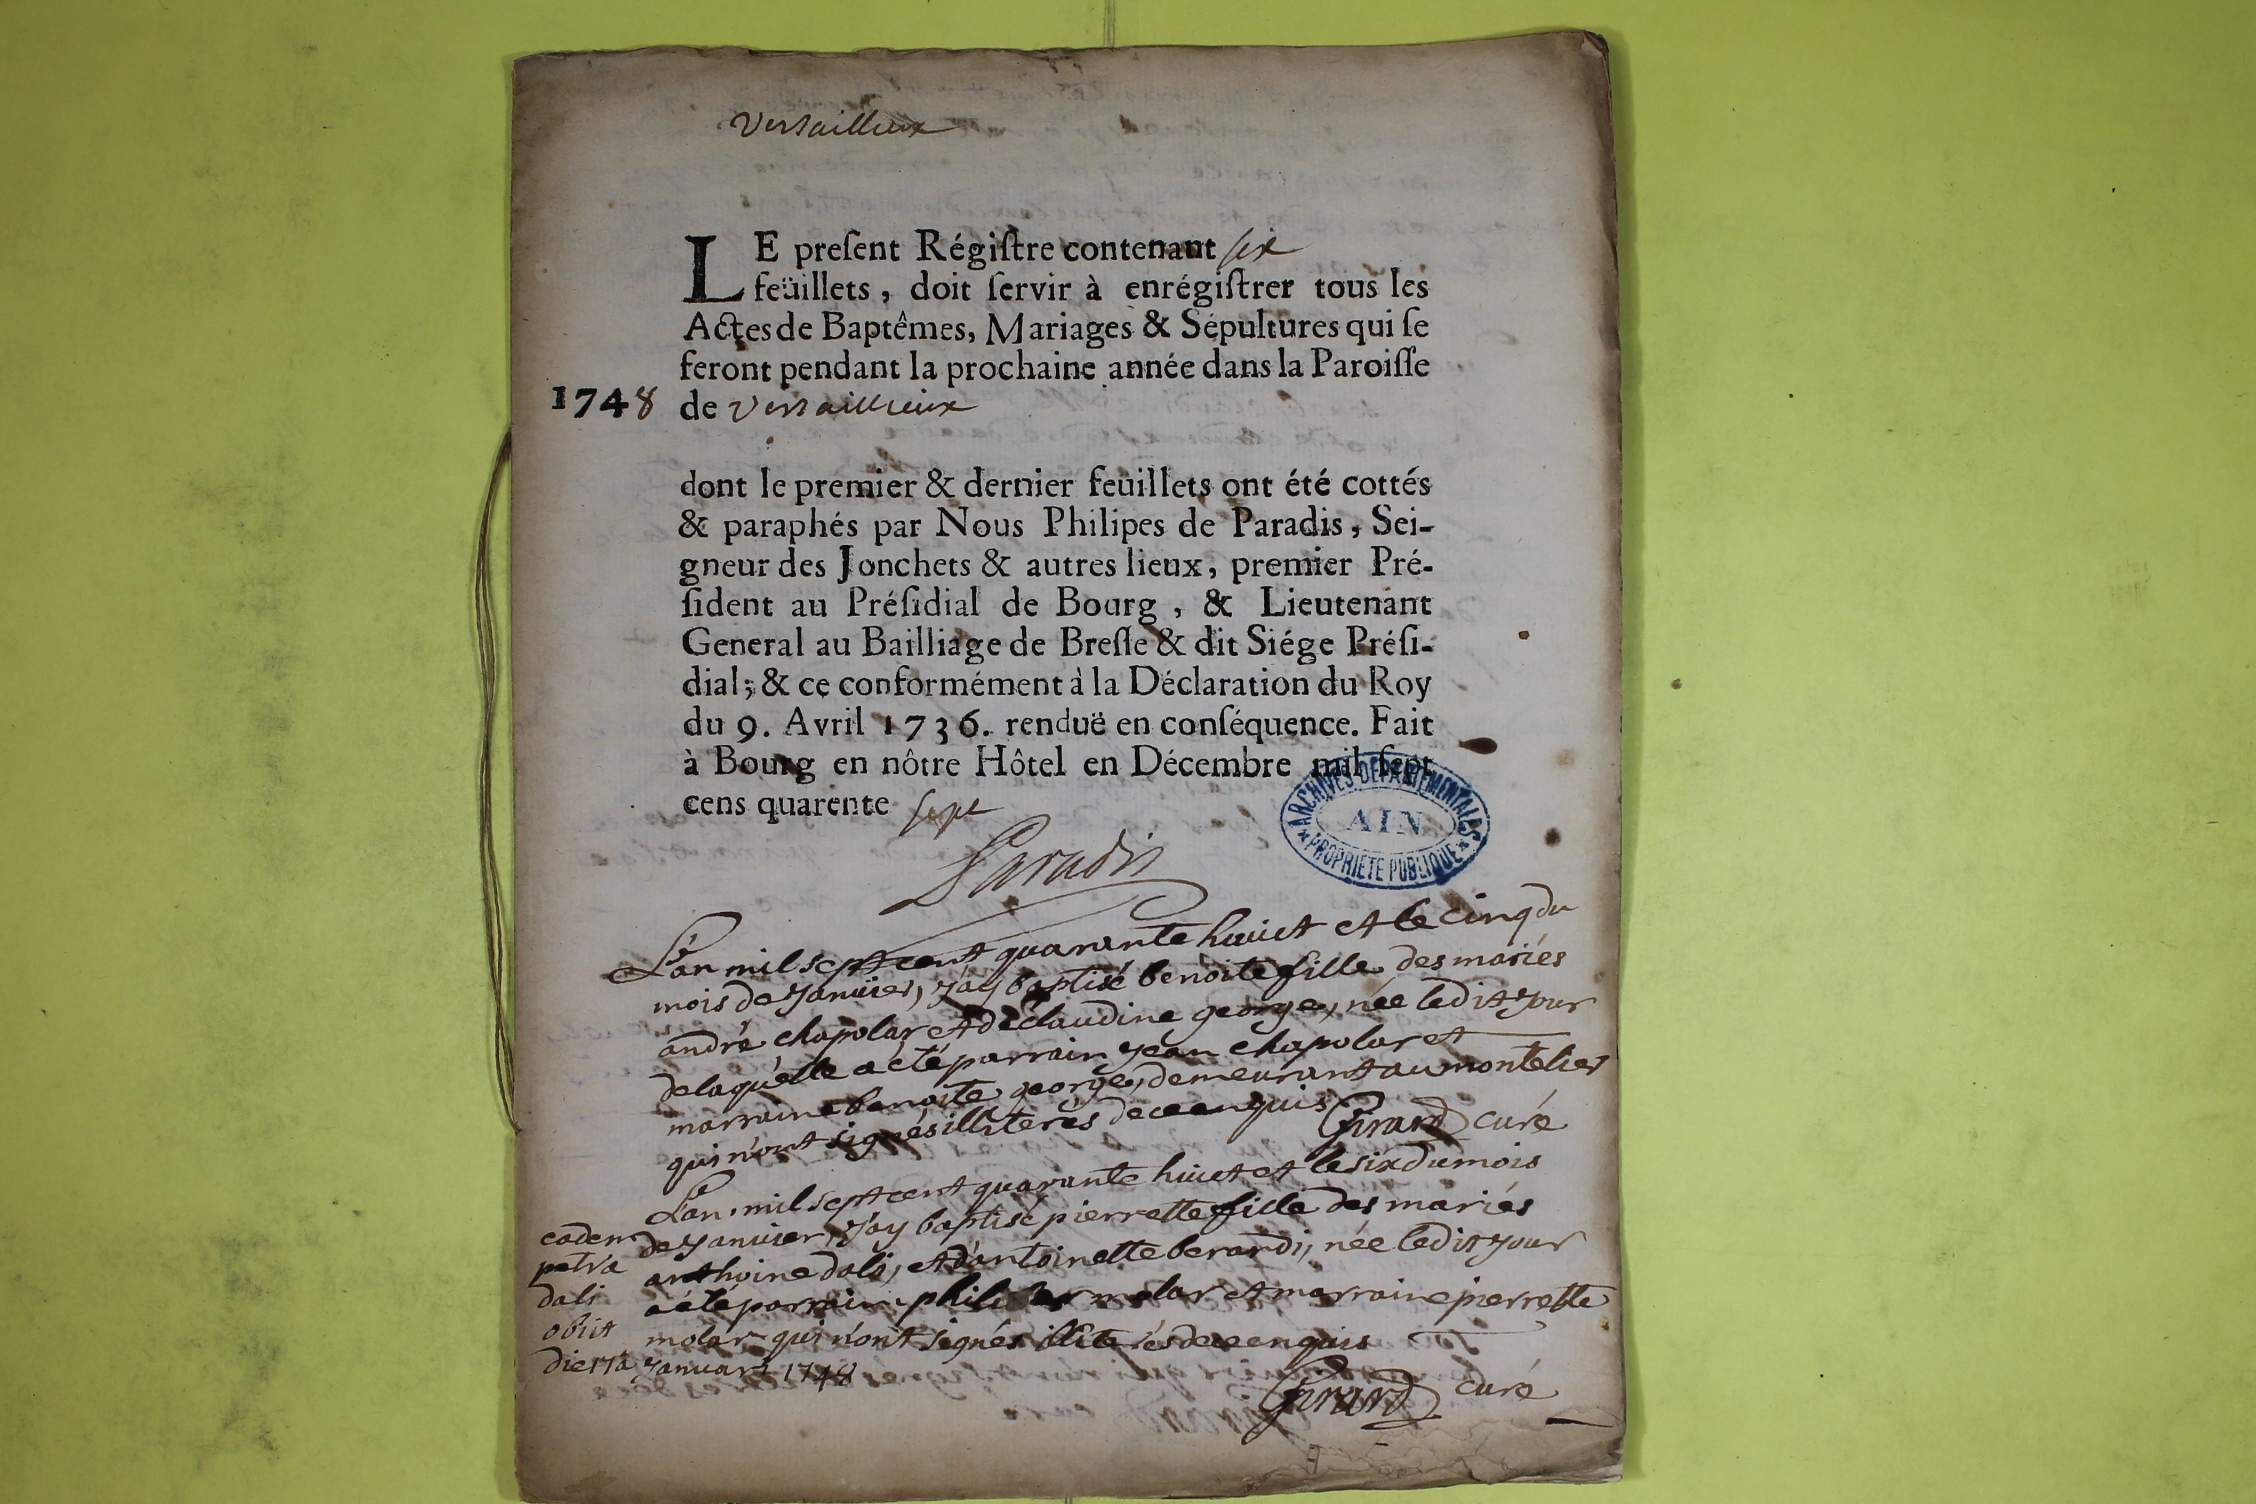 Versaillieux
LE preſent Régiſtre contenant six
feüillets, doit ſervir à enrégiſtrer tous les
Actes de Baptêmes, Mariages & Sépultures qui ſe
feront pendant la prochaine année dans la Paroiſſe
1748 de Versaillieux
dont le premier & dernier feüillets ont été cottés
& paraphés par Nous Philipes de Paradis, Sei-
gneur des Jonchets & autres lieux, premier Pré-
ſident au Préſidial de Bourg, & Lieutenant
General au Bailliage de Breſſe & dit Siége Préſi-
dial; & ce conformément à la Déclaration du Roy
du 9. Avril 1736. renduë en conſéquence. Fait
à Bourg en nôtre Hôtel en Décembre mil ſept
cens quarente sept
Paradis
ARCHIVES DEPARTEMENTALES
AIN
PROPRIETE PUBLIQUE
L'an mil sept cent quarante huict et le cinq du
mois de Janvier, j'ay baptisé benoite fille des mariés
andré chapolar et de claudine george, née ledit jour
de laquelle a eté parrain jean chapolar et
marraine benoite george, demeurant au montelier
qui n'ont signés illiterés de ce enquis Girard curé
L'an mil sept cent quarante huict et le six du mois
de Janvier, j'ay baptisé pierrette fille des mariés
anthoine dali, et d'antoinette berardi, née ledit jour
a eté parrain molar et marraine pierrette
molar qui n'ont signés illiterés de ce enquis
Girard curé
eadem
petra
dali
obiit
die januari 1748